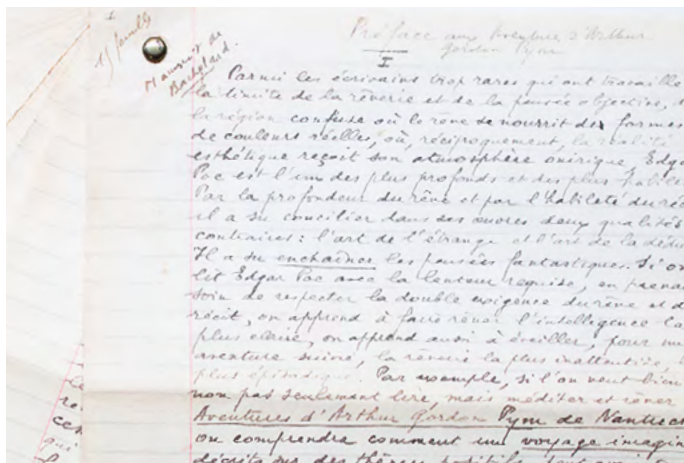 I
15 feuillets
Manuscrit de
Bachelard.
Préface aux Aventures d'Arthur
Gordon Pym
I
Parmi les écrivains trop rares qui ont travaillé
la limite de la rêverie et de la pensée objective, d
la région confuse où le rêve se nourrit des formes
de couleurs réelles, où, réciproquement, la réalité
esthétique reçoit son atmosphère onirique, Edga
Poe est l'un des plus profonds et des plus habile
Par la profondeur du rêve et par l'habileté du réc
il a su concilier dans ses œuvres deux qualités
contraires : l'art de l'étrange et l'art de la dédu
Il a su enchaîner les pensées fantastiques. Si on
lit Edgar Poe avec la lenteur requise, en prenan
soin de respecter la double exigence du rêve et d
récit, on apprend à faire rêver l'intelligence la
plus claire, on apprend aussi à éveiller, pour un
aventure suivie, la rêverie la plus inattentive, l
plus épisodique. Par exemple, si l'on veut bien
non pas seulement lire, mais méditer et rêver
Aventures d'Arthur Gordon Pym de Nantuck
on comprendra comment un voyage imagin
décrits sur des thèmes positifs